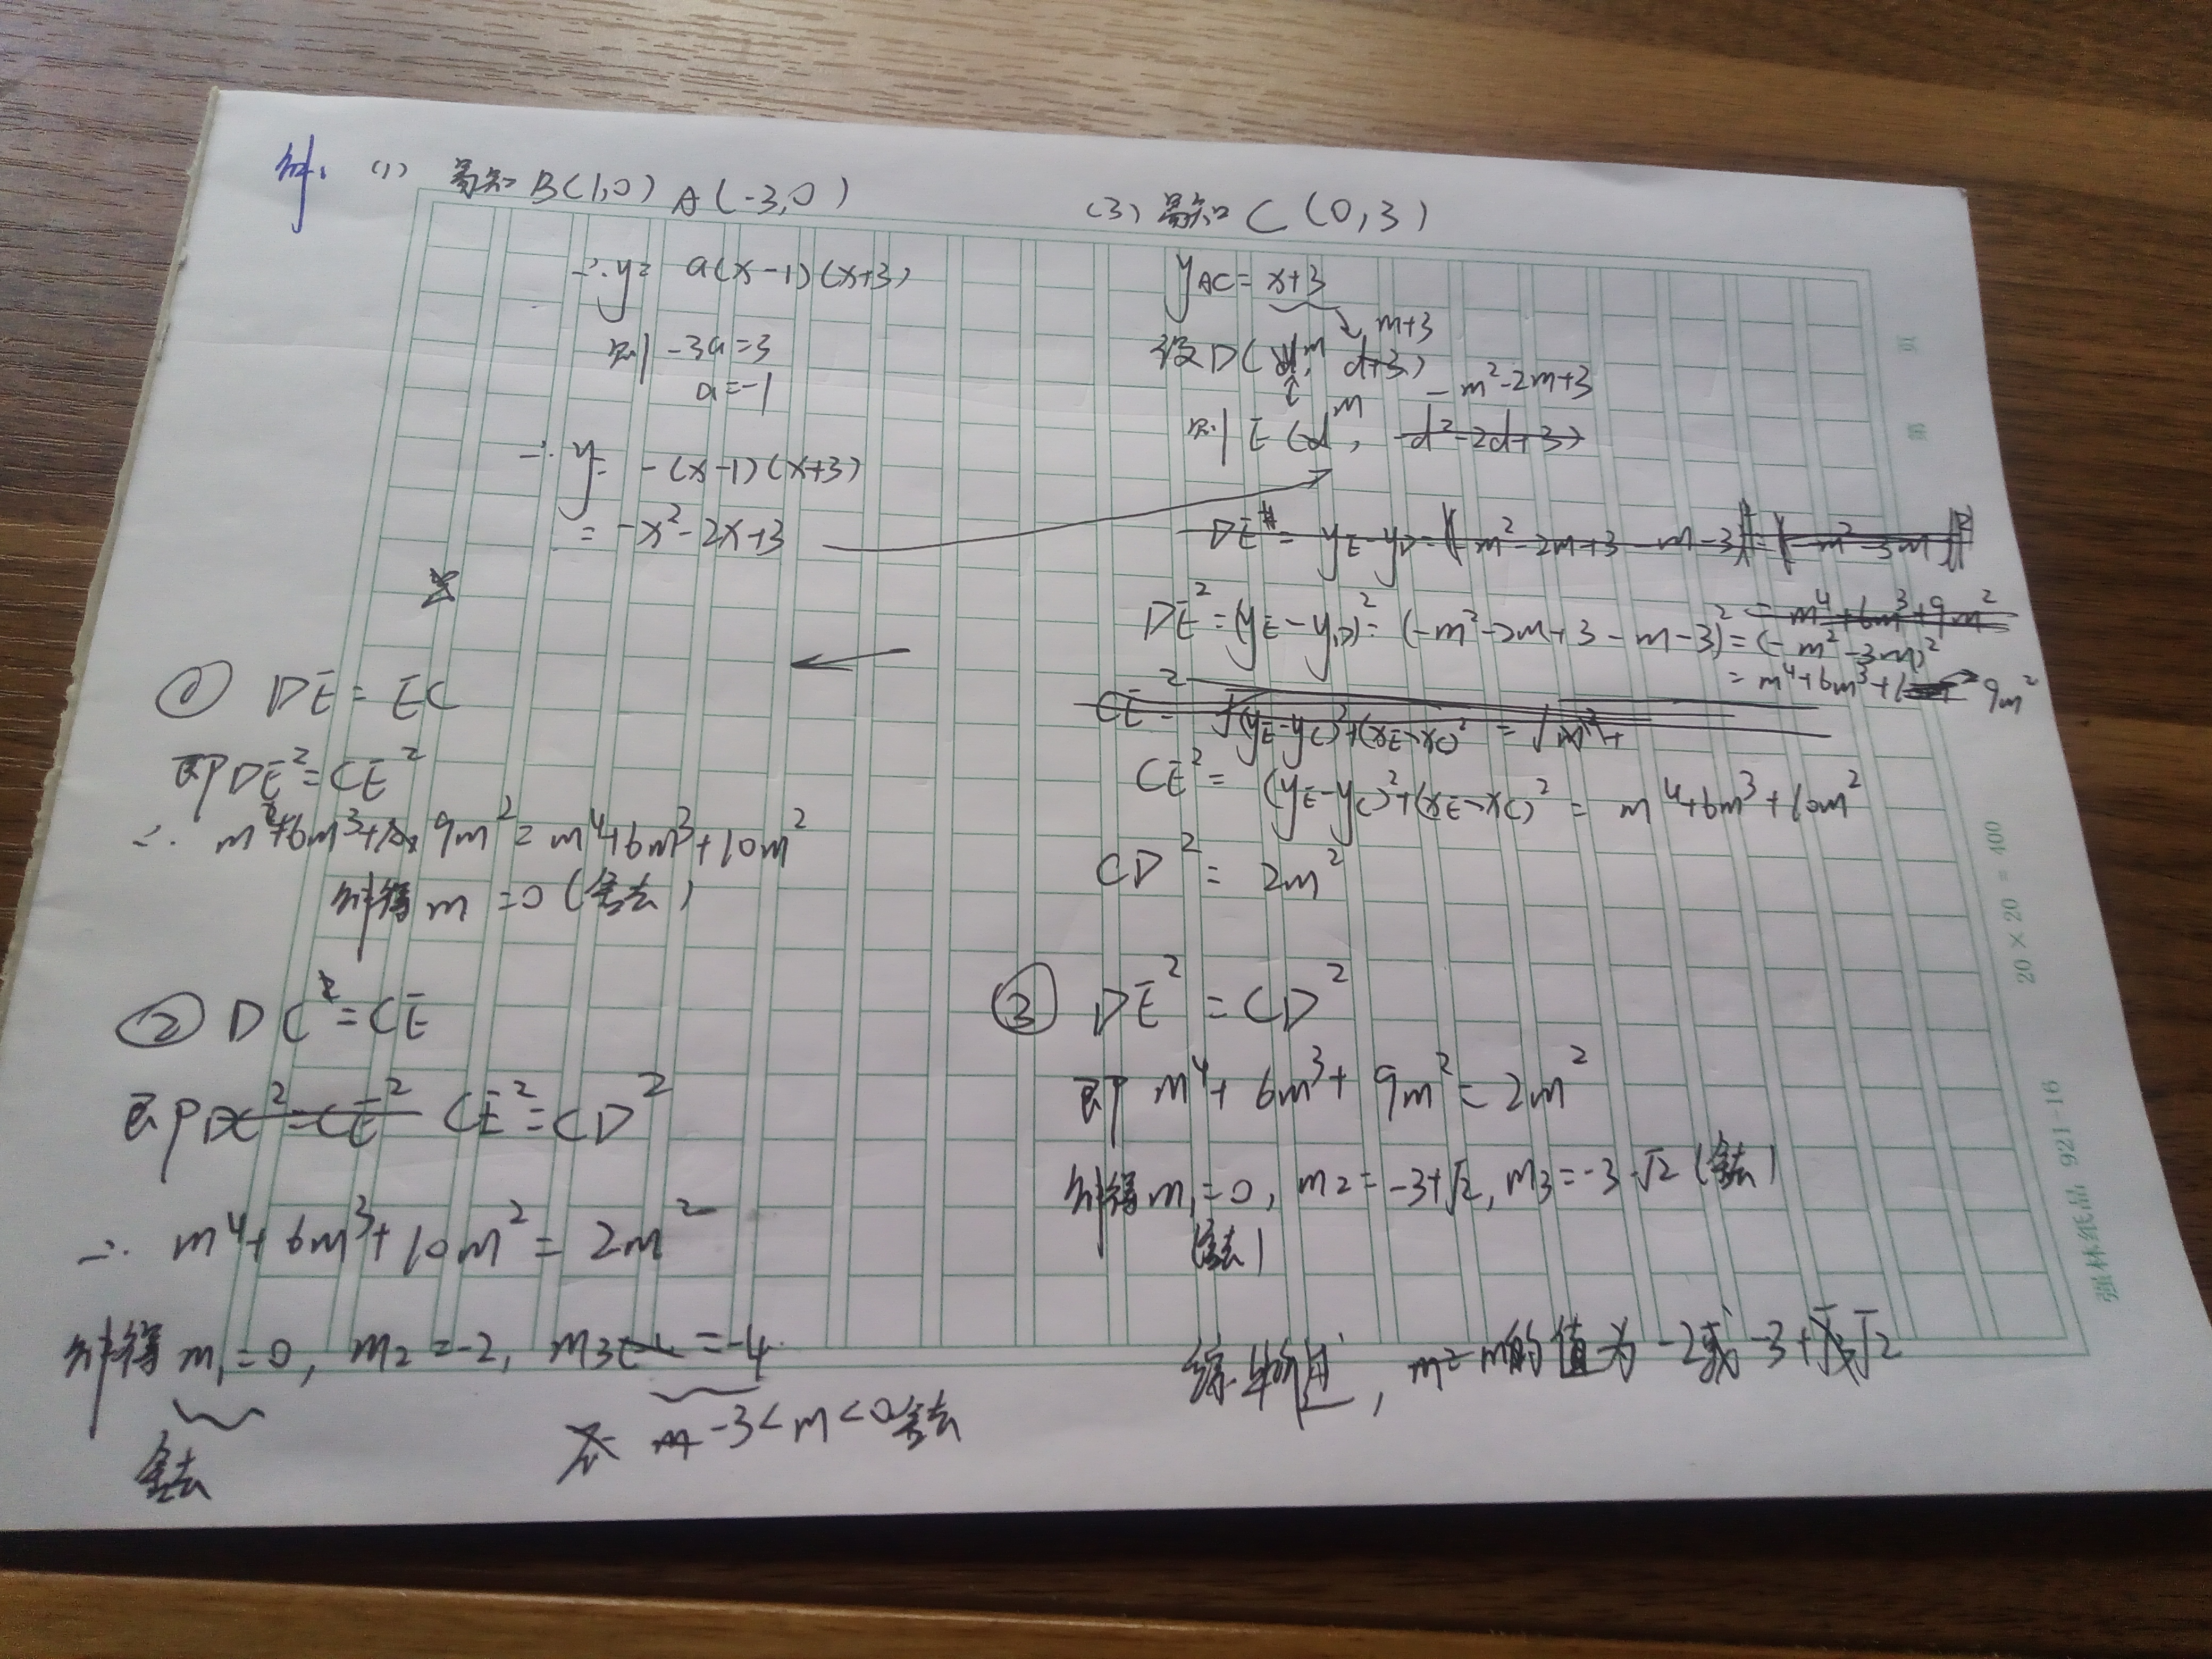 解. (1) 易知 B(1,0) A(-3,0)
∴ y= a(x-1)(x+3)
则 -3a=3
a=-1
∴ y= -(x-1)(x+3)
= -x²-2x+3
(3) 易知 C (0,3)
y_AC = x+3
m+3
设D( m, d+3)
-m²-2m+3
则 E (d m, -d²-2d+3)
DE = y_E-y_D = -m²-2m+3-m-3 = -m²-3m
= m⁴+6m³+9m²
DE²=(y_E-y_D)²= (-m²-2m+3-m-3)²=(-m²-3m)²
= m⁴+6m³+ 9m²
CE² = √(y_E-y_C)²+(x_E-x_C)² = √m⁴+
CE² = (y_E-y_C)²+(x_E-x_C)² = m⁴+6m³+10m²
CD² = 2m²
① DE = EC
即DE²=CE²
∴ m⁴+6m³+ 9m² = m⁴+6m³+10m²
解得 m =0 (舍去)
② DC=CE
即 DC²=CE² CE²=CD²
∴ m⁴+6m³+10m² = 2m²
解得 m₁=0, m₂=-2, m₃ =-4
舍去
-3<m<0舍去
③ DE² = CD²
即 m⁴+ 6m³+ 9m² = 2m²
解得 m₁=0, m₂=-3+√2, m₃=-3-√2 (舍去)
(舍去)
综上所述, m的值为 -2或 -3+√2
20×20=400
強林纸品 921-16
页
第